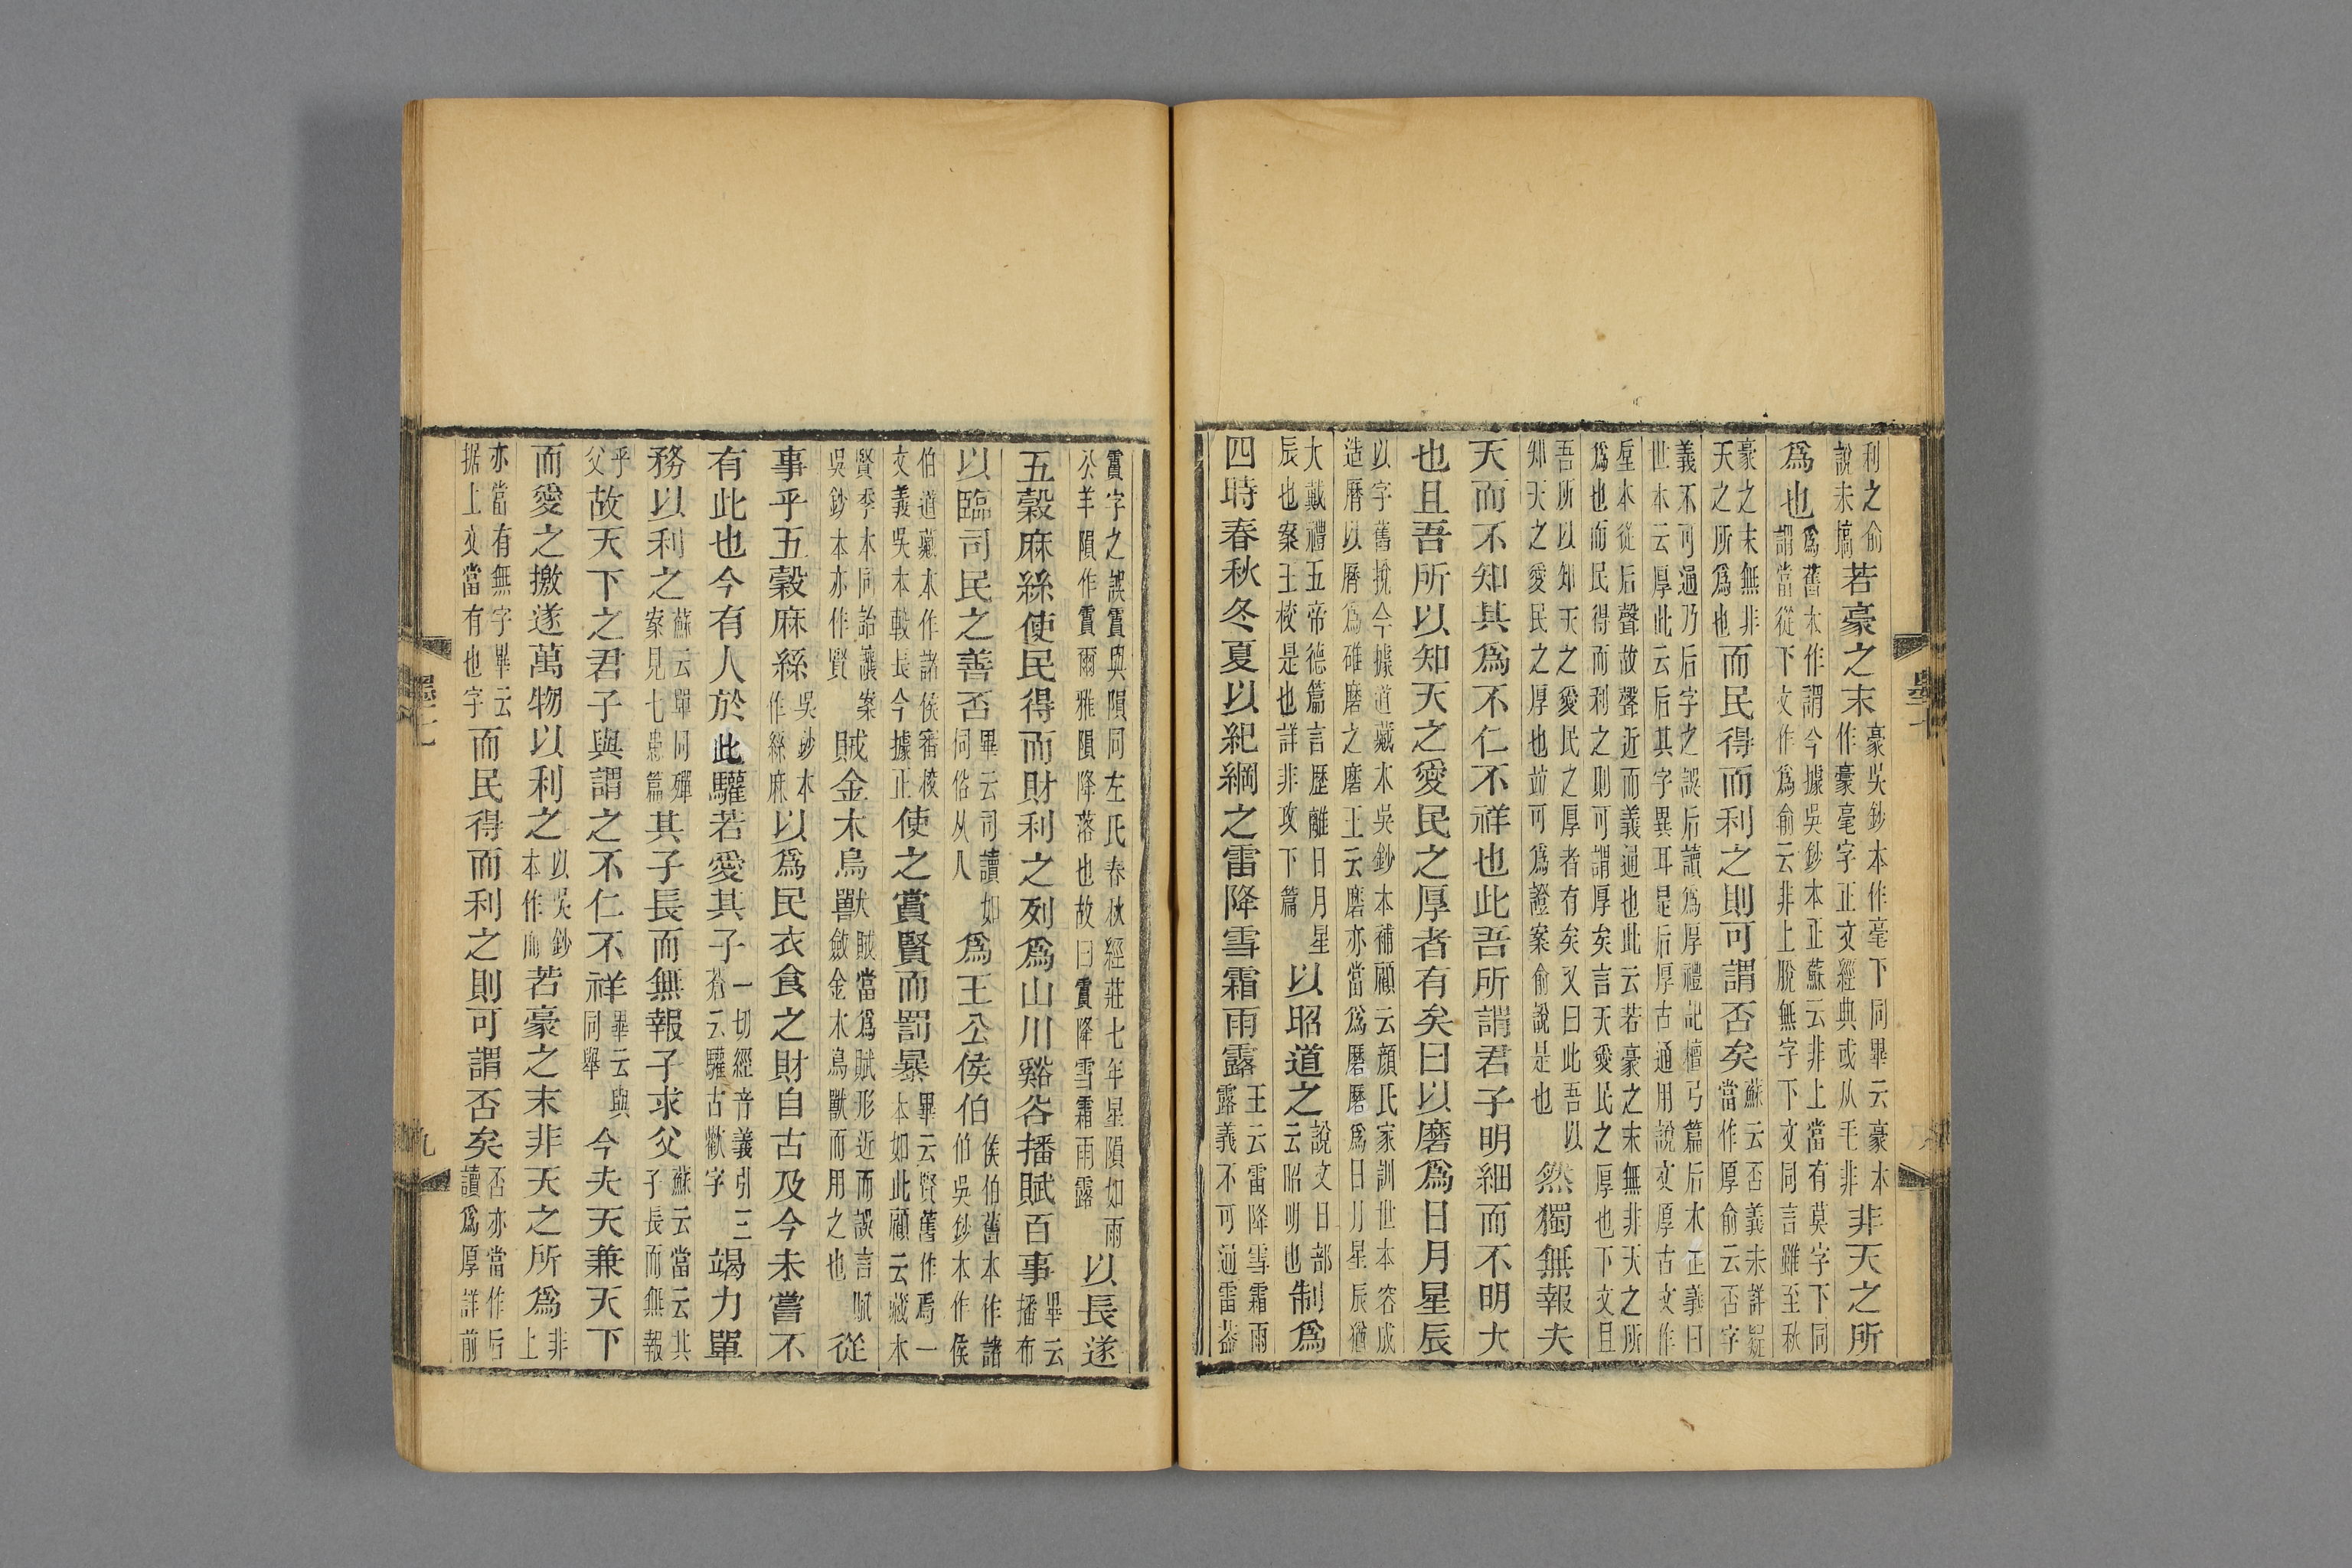 利之俞說未塙若豪之末豪吳鈔本作毫下同畢云豪本作豪毫字正文經典或从毛非非天之所
爲也爲舊本作謂今據吳鈔本正蘇云非上當有莫字下同謂當從下文作爲俞云非上脫無字下文同言雖至秋
豪之末無非天之所爲也而民得而利之則可謂否矣蘇云否義未詳疑當作厚俞云否字
義不可通乃后字之誤后讀爲厚禮記檀弓篇后木正義曰世本云厚此云后其字異耳是后厚古通用說文厚古文作
垕本從后聲故聲近而義通也此云若豪之末無非天之所爲也而民得而利之則可謂厚矣言天愛民之厚也下文且
吾所以知天之愛民之厚者有矣又曰此吾以知天之愛民之厚也竝可爲證案俞說是也然獨無報夫
天而不知其爲不仁不祥也此吾所謂君子明細而不明大
也且吾所以知天之愛民之厚者有矣曰以磨爲日月星辰
以字舊挩今據道藏本吳鈔本補顧云顏氏家訓世本容成造曆以曆爲碓磨之磨王云磨亦當爲磿磿爲日月星辰猶
大戴禮五帝德篇言歷離日月星辰也案王校是也詳非攻下篇以昭道之說文日部云昭明也制爲
四時春秋冬夏以紀綱之雷降雪霜雨露王云雷降雪霜雨露義不可通雷葢
霣字之誤霣與隕同左氏春秋經莊七年星隕如雨公羊隕作霣爾雅隕降落也故曰霣降雪霜雨露以長遂
五穀麻絲使民得而財利之列爲山川谿谷播賦百事畢云播布
以臨司民之善否畢云司讀如伺俗从人爲王公侯伯侯伯舊本作諸伯吳鈔本作侯
伯道藏本作諸侯審校文義吳本較長今據正使之賞賢而罰暴畢云賢舊作焉一本如此顧云藏本
賢季本同詒讓案吳鈔本亦作賢賊金木鳥獸賊當爲賦形近而誤言賦斂金木鳥獸而用之也從
事乎五穀麻絲吳鈔本作絲麻以爲民衣食之財自古及今未嘗不
有此也今有人於此驩若愛其子一切經音義引三蒼云驩古歡字竭力單
務以利之蘇云單同殫案見七患篇其子長而無報子求父蘇云當云其子長而無報
乎父故天下之君子與謂之不仁不祥畢云與同舉今夫天兼天下
而愛之撽遂萬物以利之以吳鈔本作而若豪之末非天之所爲非上
亦當有無字畢云据上文當有也字而民得而利之則可謂否矣否亦當作后讀爲厚詳前
墨七
九